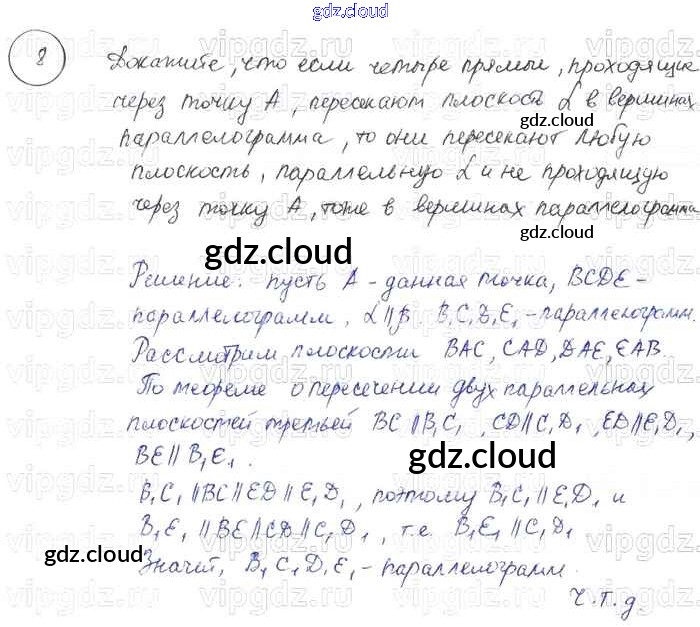 gdz.cloud
8
Докажите, что если четыре прямые, проходящие
через точку А, пересекают плоскость α в вершинах
параллелограмма, то они пересекают любую
плоскость, параллельную α и не проходящую
через точку А, тоже в вершинах параллелограмма
gdz.cloud
Решение: пусть А - данная точка, BCDE -
параллелограмм, α||β B₁C₁D₁E₁ - параллелограмм.
Рассмотрим плоскости BAC, CAD, DAE, EAB.
По теореме о пересечении двух параллельных
плоскостей третьей BC || B₁C₁, CD || C₁D₁, ED || E₁D₁,
BE || B₁E₁.
gdz.cloud
B₁C₁ || BC || ED || E₁D₁, поэтому B₁C₁ || E₁D₁ и
B₁E₁ || BE || CD || C₁D₁, т.е. B₁E₁ || C₁D₁
gdz.cloud
Значит, B₁C₁D₁E₁ - параллелограмм.
ч.т.д.
vipgdz.ru